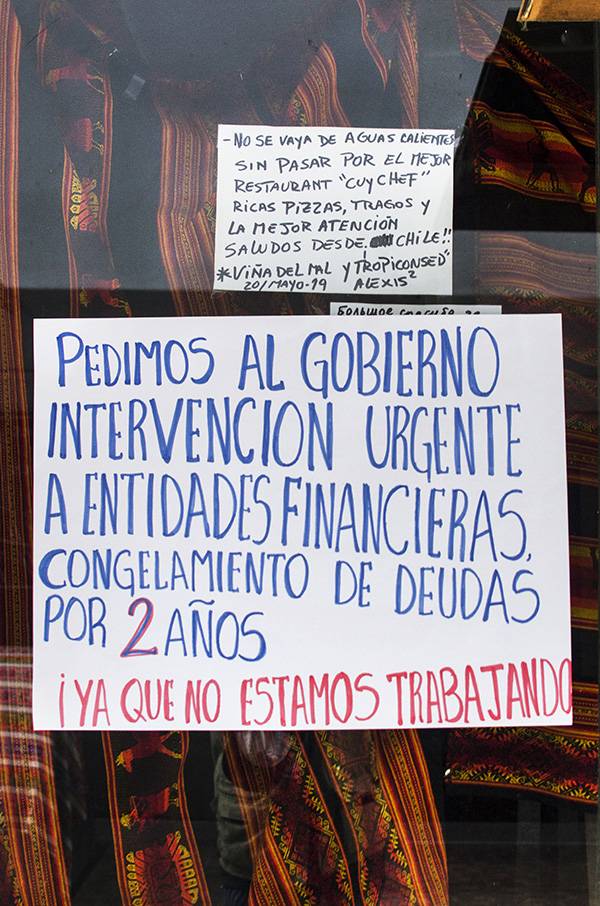 - NO SE VAYA DE AGUAS CALIENTES
SIN PASAR POR EL MEJOR
RESTAURANT "CUY CHEF"
RICAS PIZZAS, TRAGOS Y
LA MEJOR ATENCIÓN
SALUDOS DESDE CHILE!!
*VIÑA DEL MAL Y TROPICONSED"
20/MAYO-19 ALEXIS2
Большое спасибо за
PEDIMOS AL GOBIERNO
INTERVENCION URGENTE
A ENTIDADES FINANCIERAS,
CONGELAMIENTO DE DEUDAS
POR 2 AÑOS
¡YA QUE NO ESTAMOS TRABAJANDO